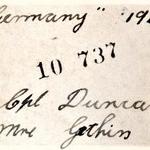 Germany" 19
10 737
Cpl Dunca
Mne Gethin